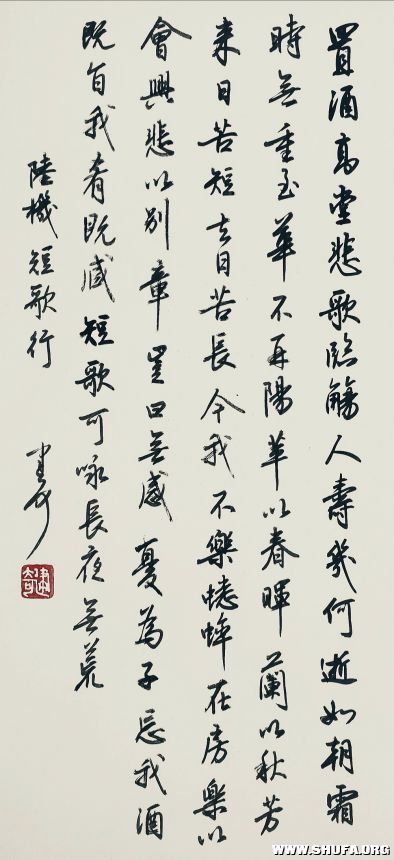 置酒高堂悲歌臨觴人壽幾何逝如朝霜
時無重至華不再陽苹以春暉蘭以秋芳
来日苦短去日苦長今我不樂蟋蟀在房樂以
會興悲以別章豈曰無感憂為子忘我酒
既旨我肴既臧短歌可咏長夜無荒
陸機短歌行
建奇
WWW.SHUFA.ORG